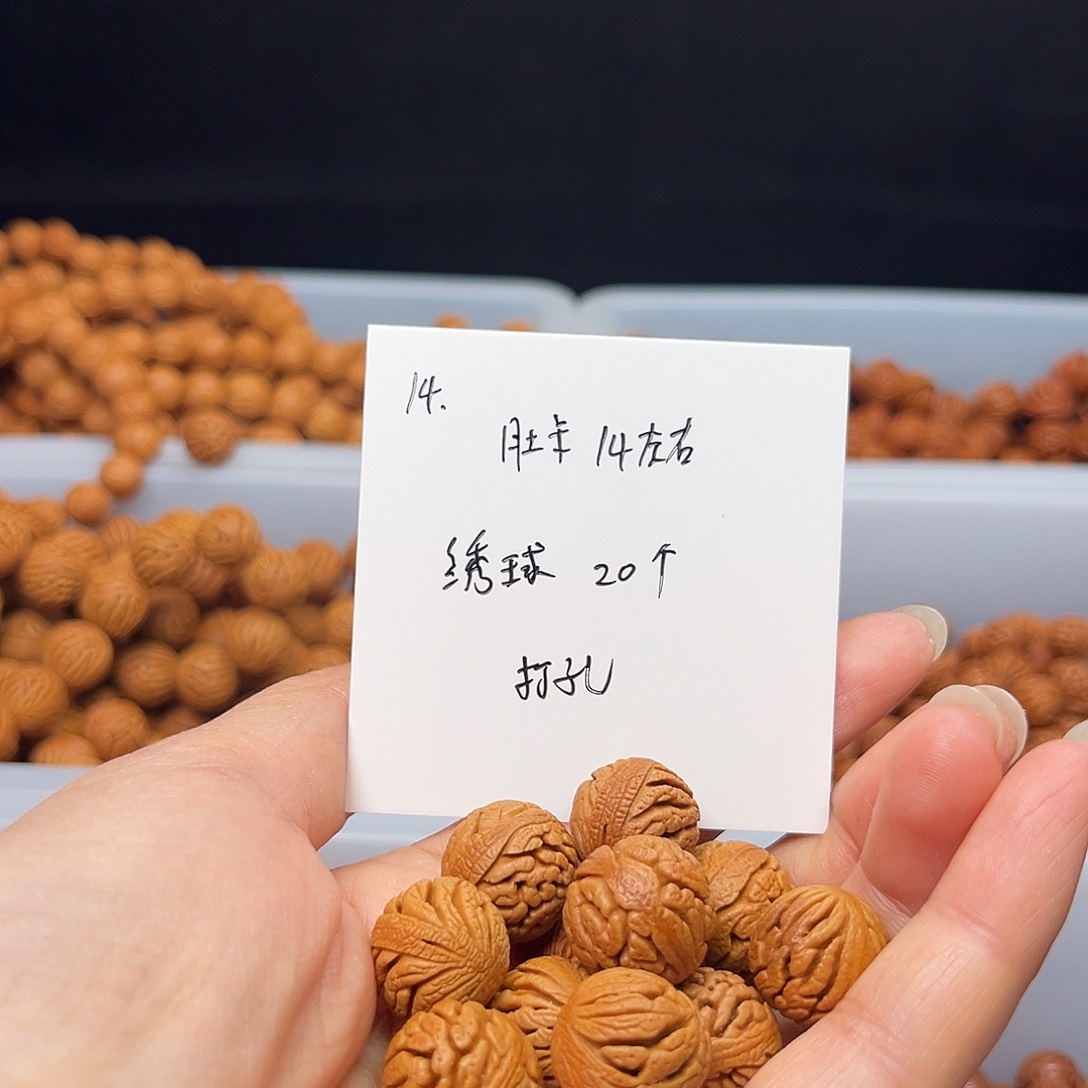 14.
肚卡 14左右
绣球 20个
打孔